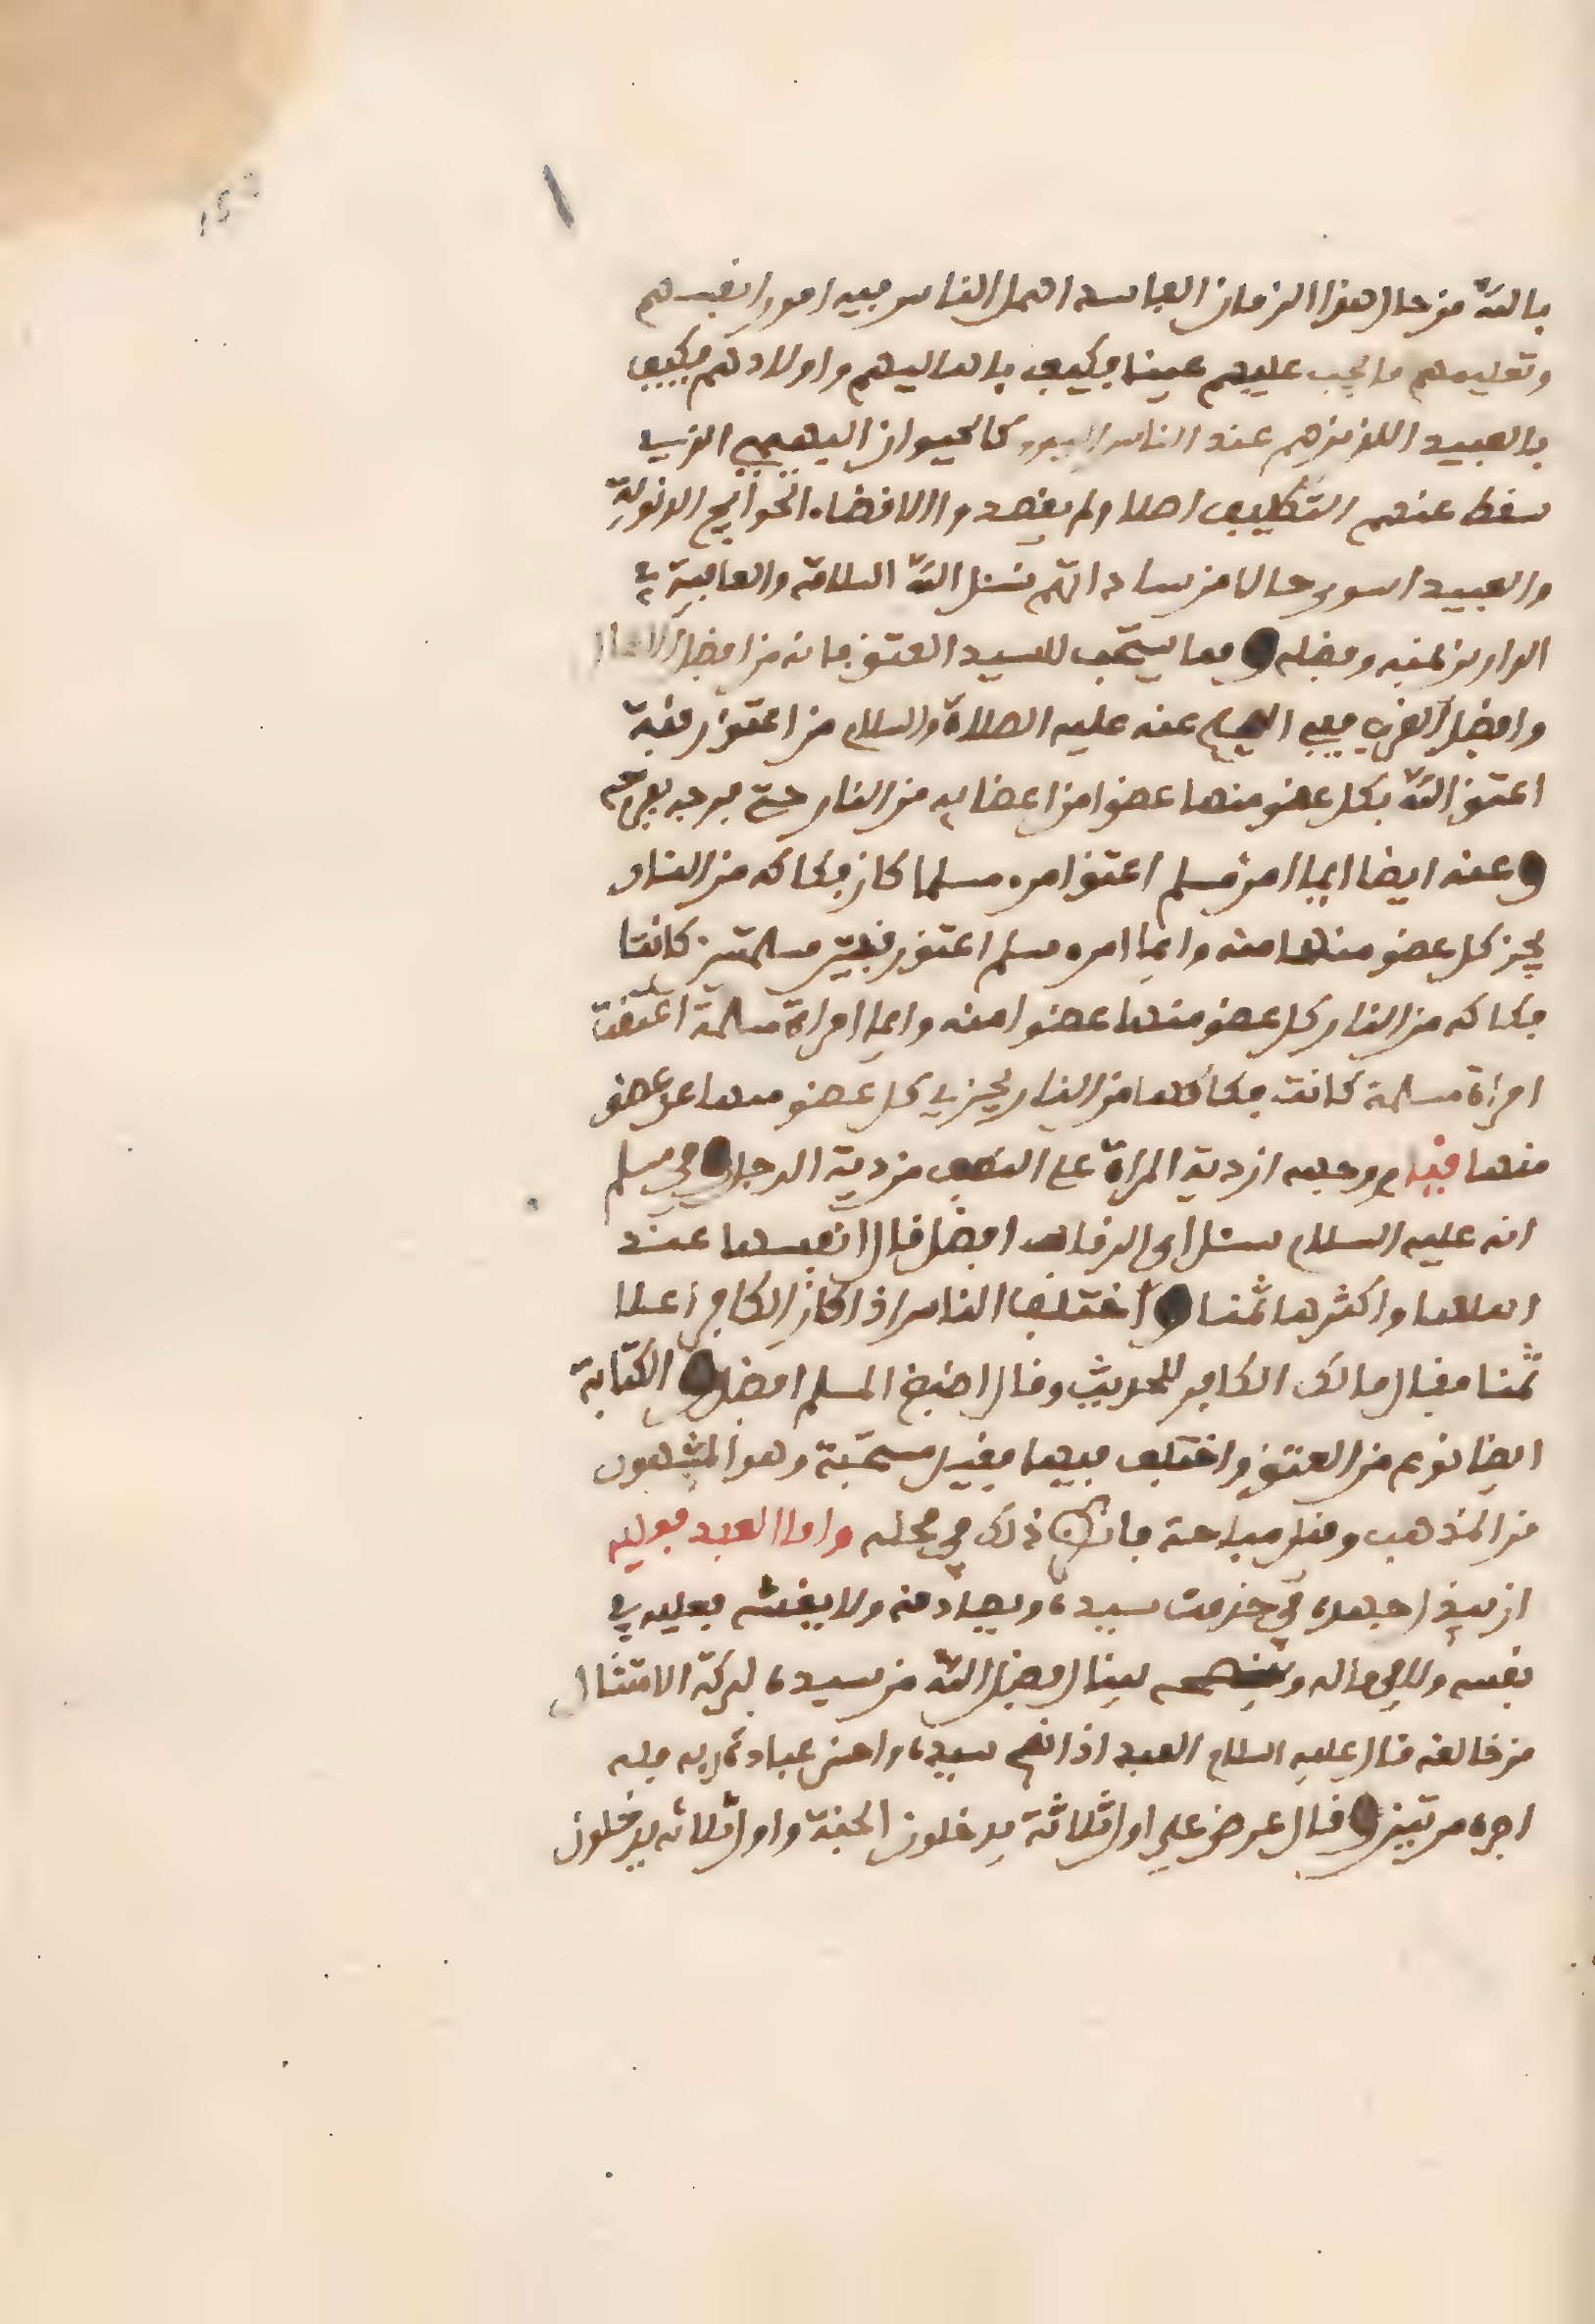 بالله من حال هذا الزمان الفاسد اهمل الناس فيه امور انفسهم
وتعليمهم ما يجب عليهم عينا فكيف باهاليهم واولادهم فكيف
بالعبيد اللذين هم عند الناس اليوم كالحيوان البهيمي الذي
سقط عنهم التكليف اصلا ولم يقصدوا الا قضاء الحوايج الدنوية
والعبيد اسوى حالا من ساداتهم نسئل الله السلامة والعافية في
الدارين بمنه وفضله ومما يستحب للسيد العتق فانه من افضل الاعمال
وافضل القرب ففي الصحيح عنه عليه الصلاة والسلام من اعتق رقبة
اعتق الله بكل عضو منها عضوا من اعضايه من النار حتى فرجه بفرجه
وعنه ايضا ايما امرئ مسلم اعتق امرء مسلما كان فكاكه من النار
يجز كل عضو منها منه وايما امرء مسلم اعتق رقبتين مسلمتين كانتا
فكاكه من النار كل عضو منهما عضوا منه وايما امراة مسلمة اعتقت
امراة مسلمة كانت فكاكها من النار يجزي كل عضو منها عن عضو
منها قيل ووجهه ان دية المراة على النصف من دية الرجل وفي مسلم
انه عليه السلام سئل اي الرقاب افضل قال انفسها عند
اهلها واكثرها ثمنا واختلف الناس اذا كان الكافر اعلا
ثمنا فقال مالك الكافر للحديث وقال اصبغ المسلم افضل والكتابة
ايضا نوع من العتق واختلف فيها فقيل مستحبة وهو المشهور
من المذهب وقيل مباحة فانظر ذلك في محله واما العبد فعليه
ان يبذل جهده في خدمت سيده ويصادقه ولا يغشه فعليه في
نفسه ولا في ماله وينصحه لينال فضل الله من سيده لبركة الامتثال
من خالقه قال عليه السلام العبد اذا نصح سيده واحسن عبادة ربه فله
اجره مرتين وقال عرض علي اول ثلاثة يدخلون الجنة واول ثلاثة يدخلون